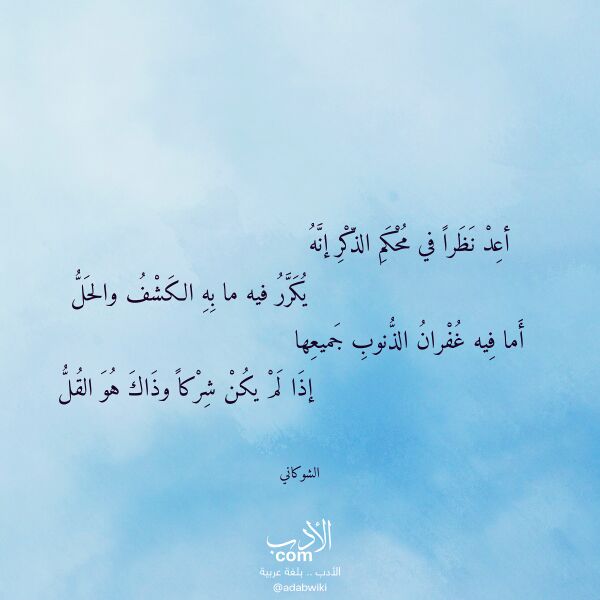 أعِدْ نَظَراً في مُحْكَمِ الذّكْرِ إنَّهُ
يُكَرَّرُ فيه ما بِهِ الكَشْفُ والحَلُّ
أَما فِيه غُفْرانُ الذُّنوبِ جَميعِها
إذَا لَمْ يكُنْ شِرْكاً وذَاكَ هُوَ القُلُّ
الشوكاني
الأدب
com
الأدب .. بلغة عربية
@adabwiki